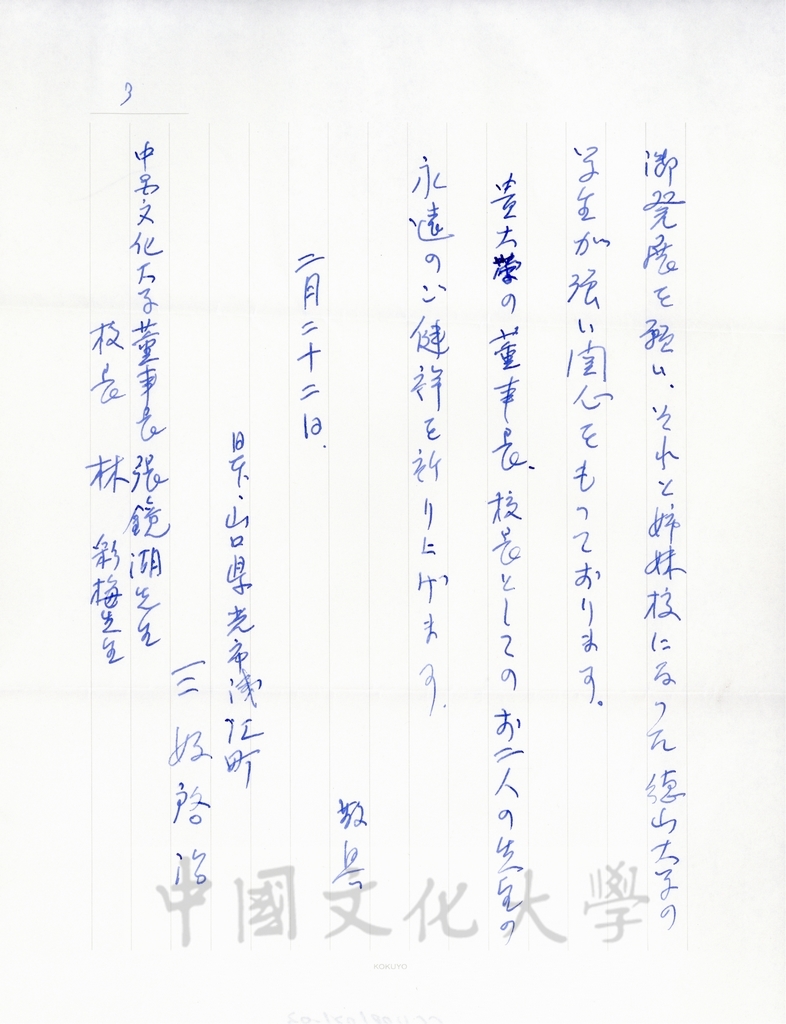 3
御発展を願い、それと姉妹校になった徳山大学の
学生が強い関心をもっております。
貴大学の董事長、校長としてのお二人の先生の
永遠のご健祥を祈り上げます。
敬具
二月二十二日、
日本、山口県光市浅江町
三好啓治
中国文化大学董事長 張鏡湖先生
校長 林 彩梅先生
中國文化大學
KOKUYO